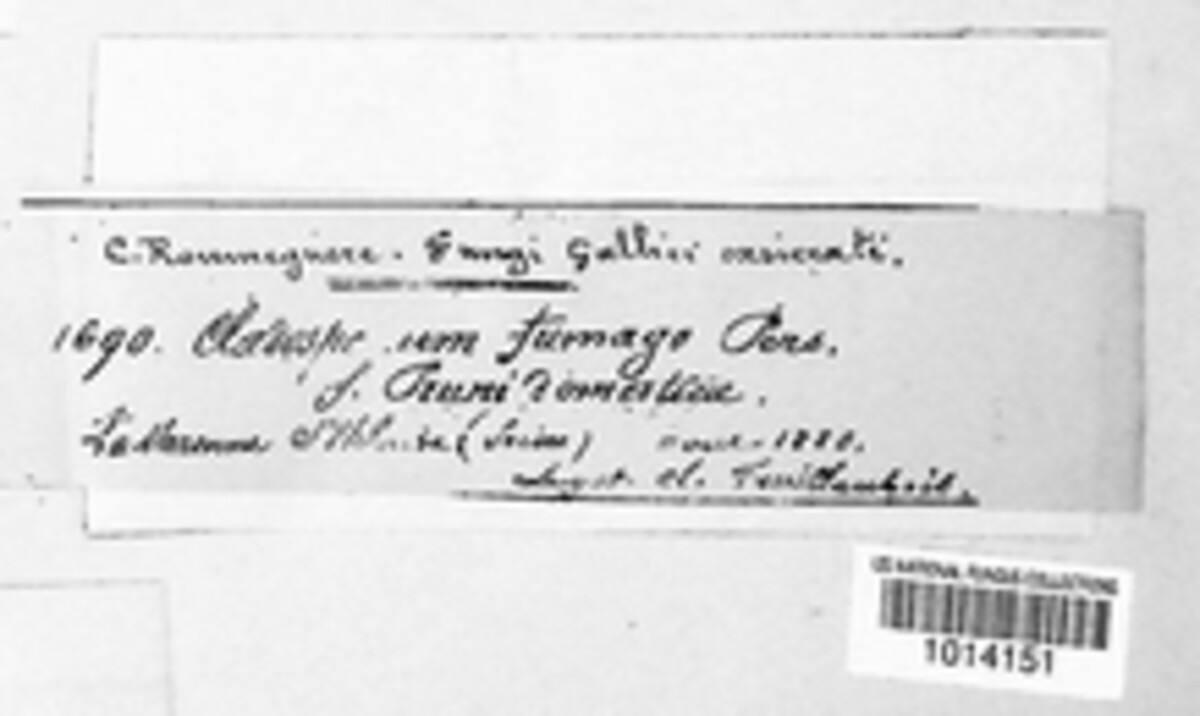 C. Roumeguere. Fungi Gallici exsiccati.
1690. Cladospo um fumago Pers.
f. Pruni domesticae.
La Varenne (Seine) 1880.
Aug st. cl.
US NATIONAL FUNGUS COLLECTIONS
1014151